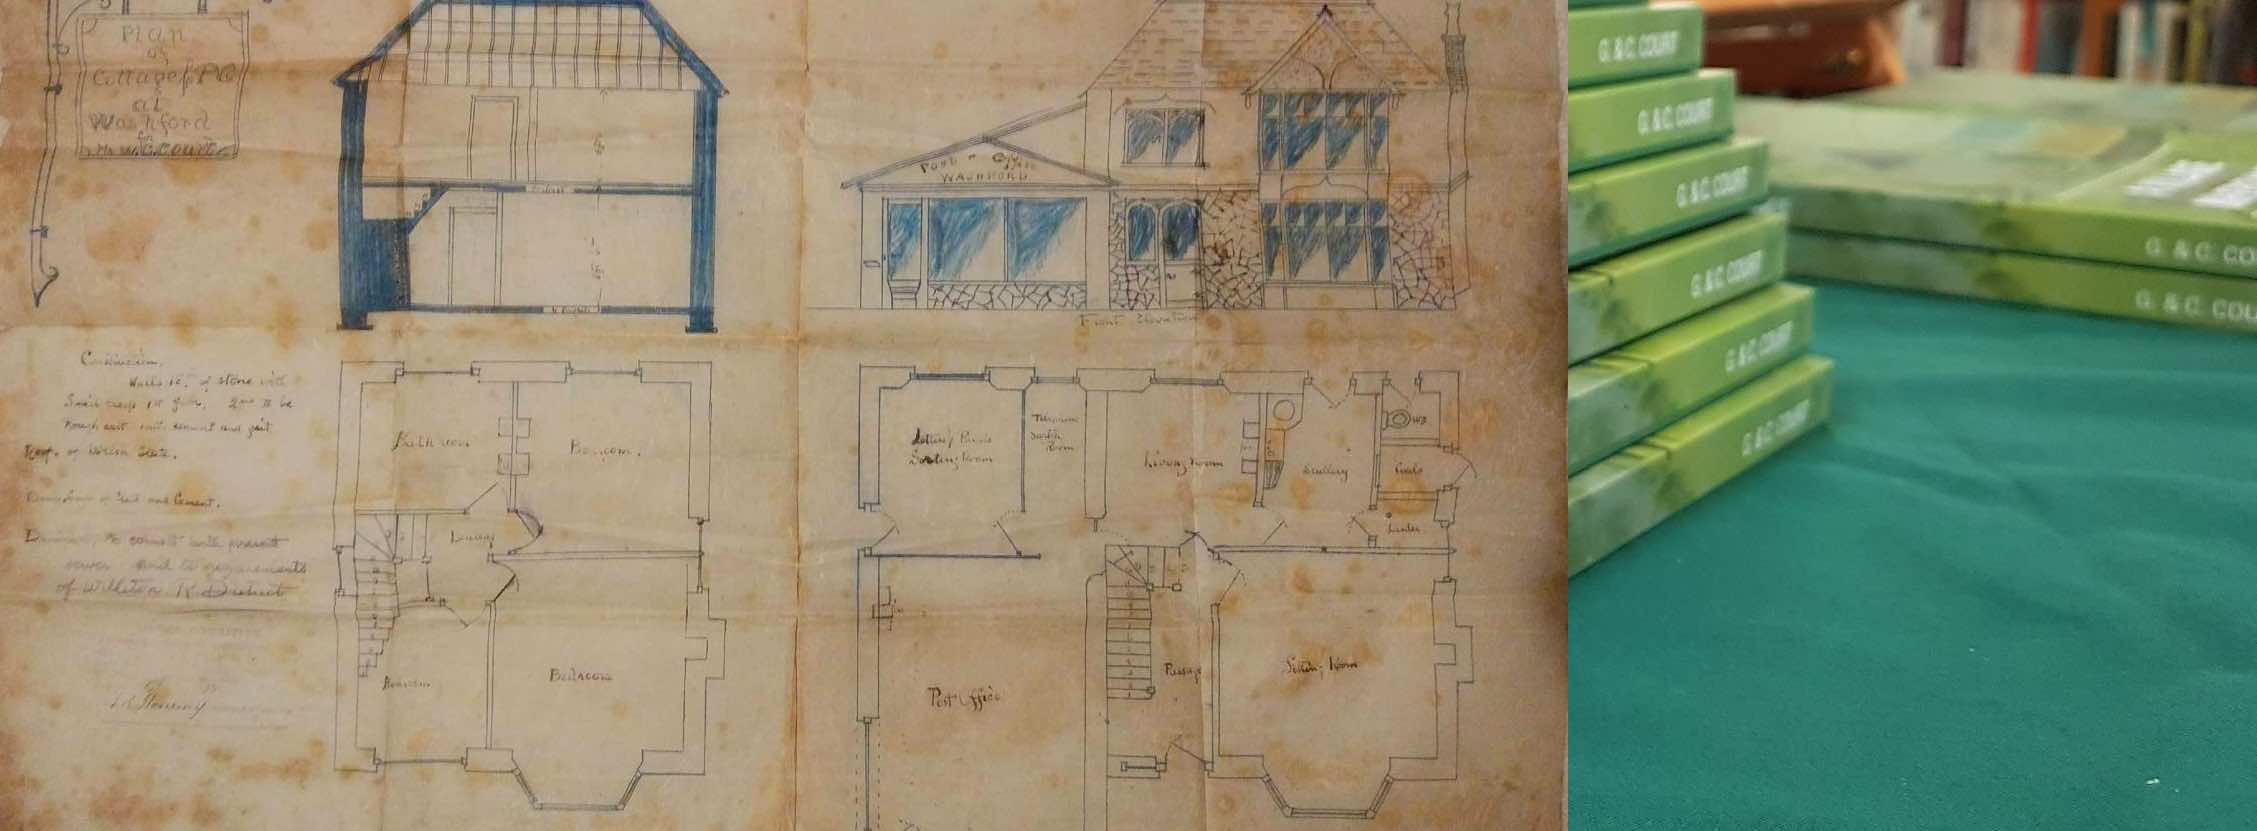 Plan
of
Cottage & P.O
at
Washford
for
Mr W.G. Court.
Post - Office
WASHFORD
Front Elevation
Construction.
Walls of stone with
1st floor, 2nd to be
Rough cast with cement and grit
Roof. of Slate.
and Cement.
Drainage, to connect with present
sewer and to requirements
of Williton R. District
Bath room
Bedroom.
Landing
Bedroom
Bedroom
Letters / Parcels
Sorting Room
Room
Living room
Scullery
WC
Coals
Larder
Passage
Post Office
Sitting Room
G. & C. COURT
G. & C. COURT
G. & C. COURT
G. & C. COURT
G. & C. COURT
G. & C. COURT
G. & C. CO
G. & C. COU